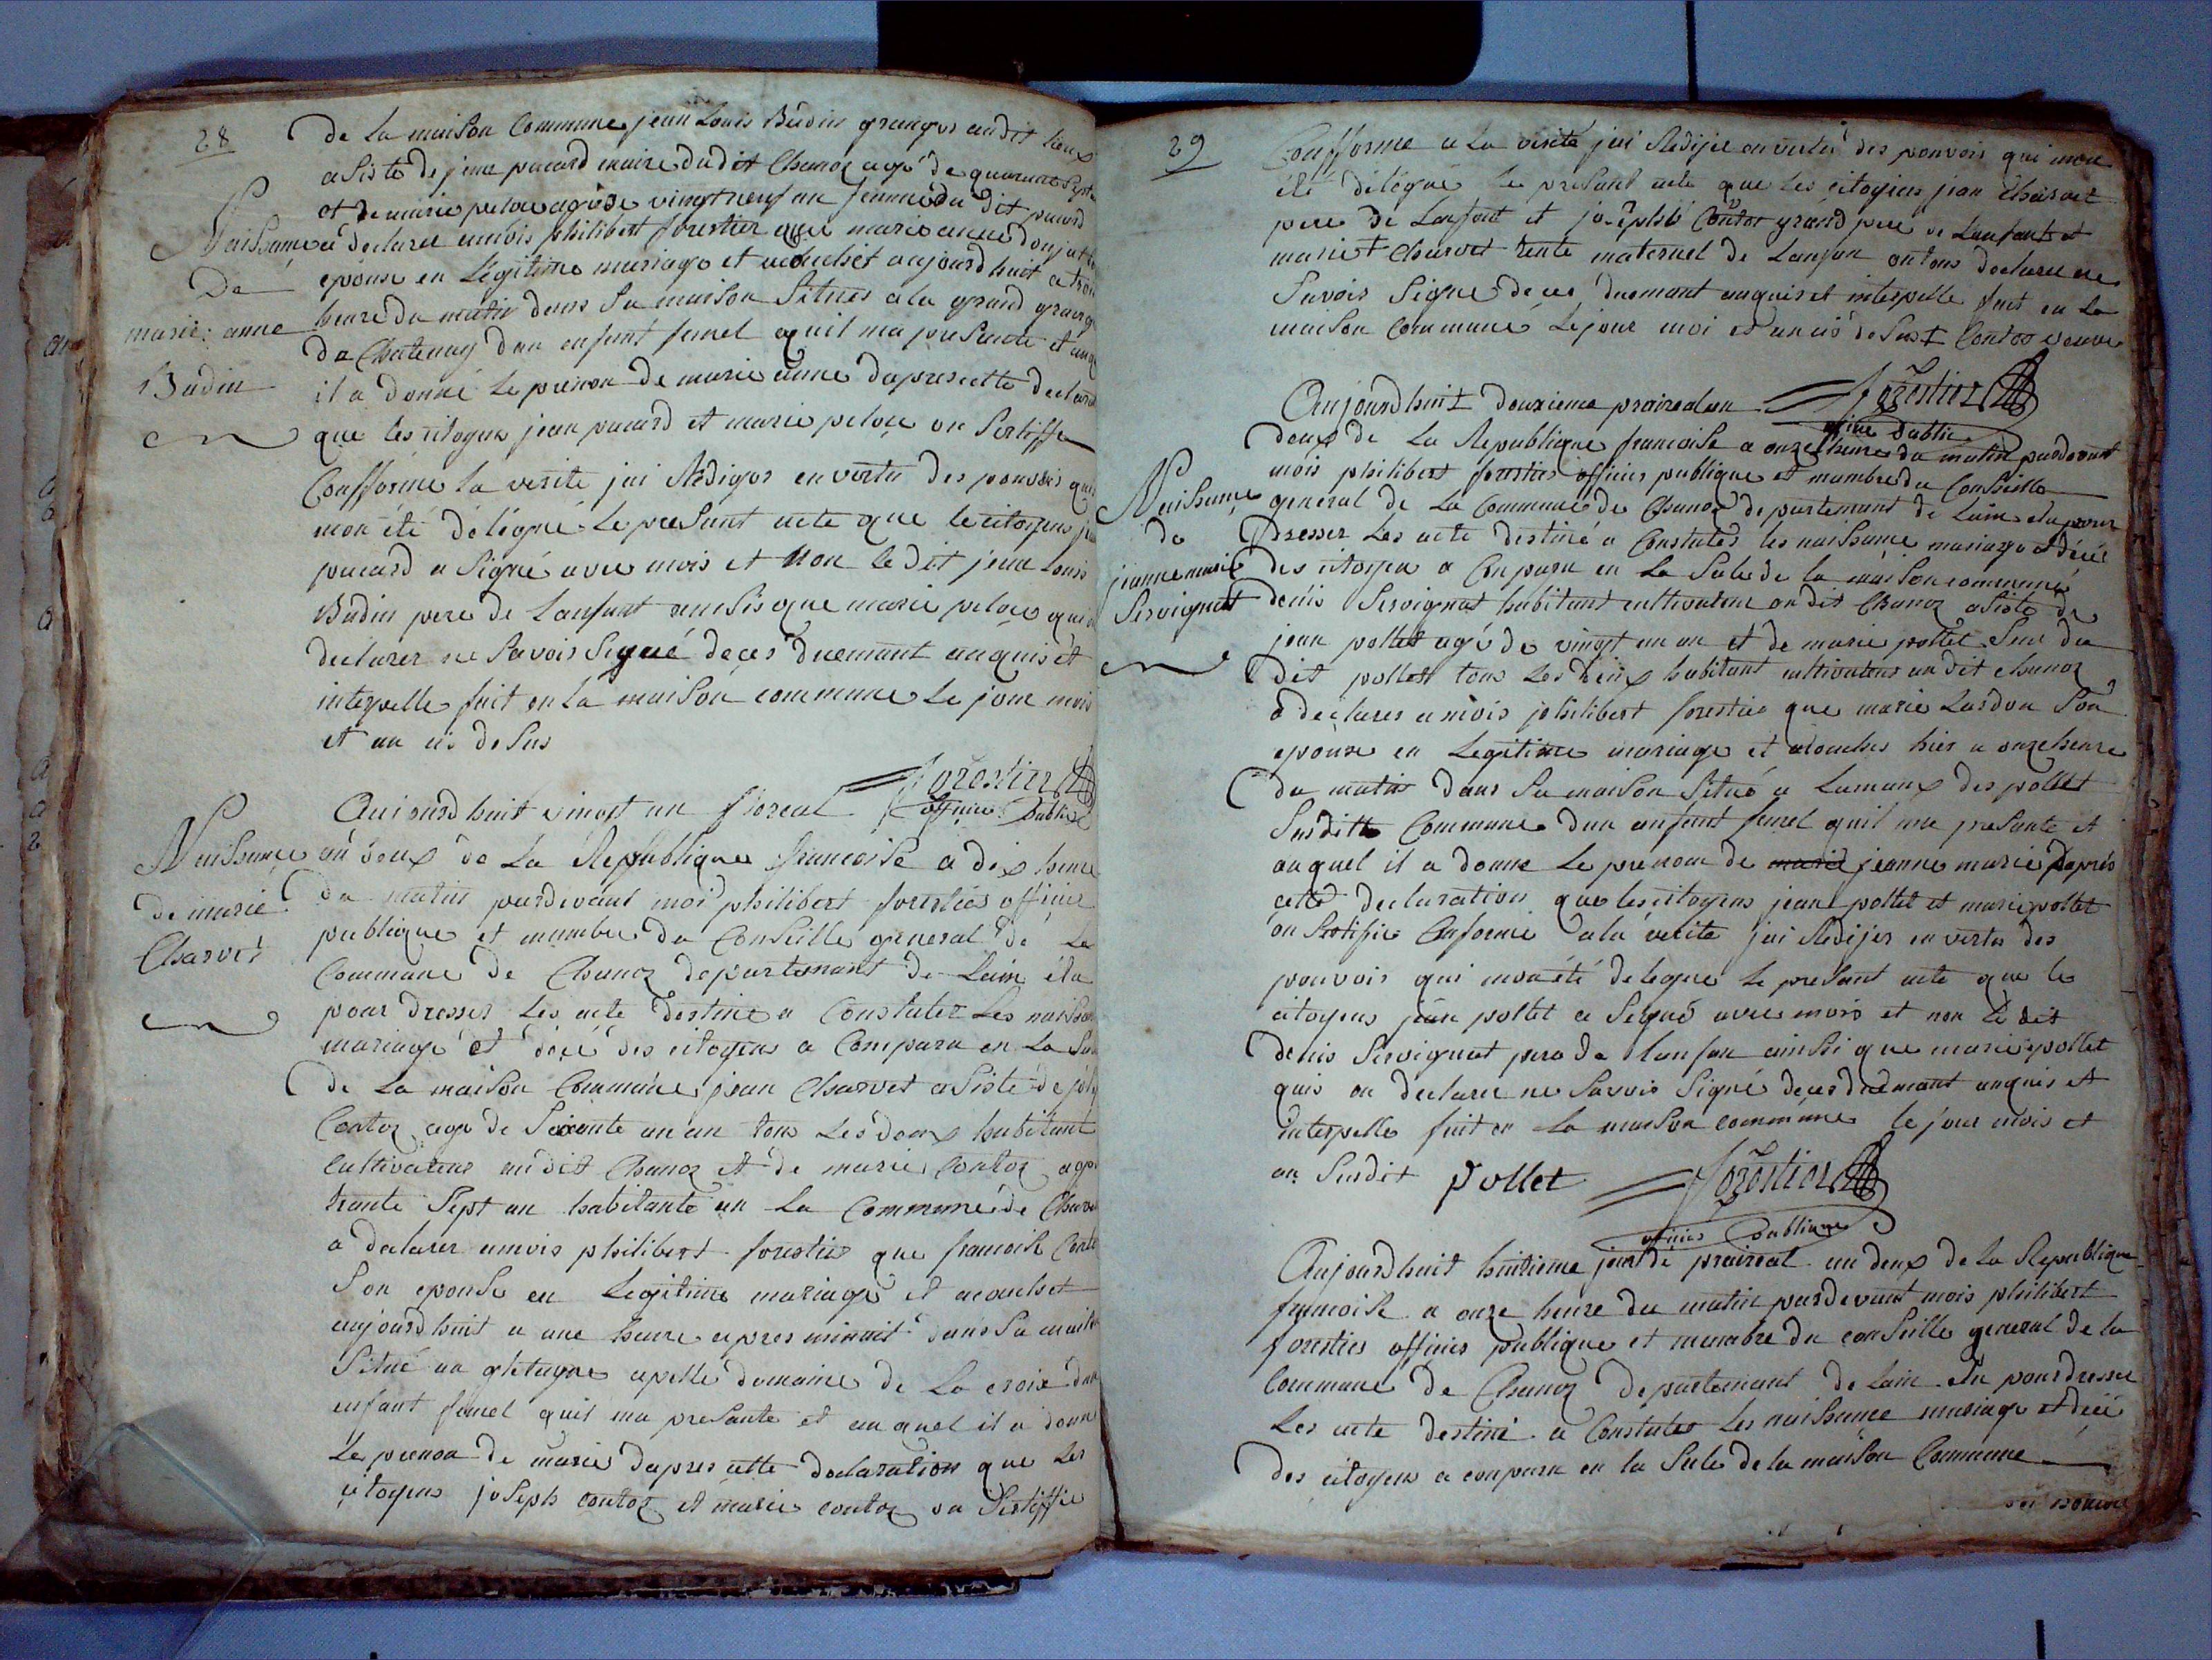 28
de la maison Commune jean Louis Budin granger audit lieux
asisté de jean pacard maire dudit Chanoz agé de quarante sept
et de marie peloux agée de vingt neuf an femme du dit pacard
Naissance
a declarer a mois philibert forestier que marie anne
De
epouse en Légitime mariage et acouchet aujourd huit a trois
marie: anne
heure du matin dans sa maison Situes a la grand grange
Budin
de Chatenay dun enfent femel quil ma presente et auq
il a donné le prenon de marie anne dapres cette declara
que les citoyens jean pacard et marie peloux on Sertiffie
Confforme la verite jai Redigés en vertu des pouvoirs qui
mon été délégué le presant acte que le citoyens j
pacard a Signé avec mois et Non le dit jean Louis
Budin pere de Lanfant ainsis que marie peloux quis
declarer ne Savois Signé de ces duemant anquis et
interpelle fait en la maison commune Le jour mois
et an cis desus
forestier
officier Public
Aujourd huit vingt un floreal
Naissance
an deux de La Republique francaise a dix heure
de marie
du matin pardevant moi philibert forestier officier
Charvet
publique et membre du Conseille general de La
Commune de Chanoz departemant de Lain élu
pour dresser Les acte destine a Constater Les naissan
mariage et décé des citoyens a Comparu en La Sal
de La maison Commune jean Charvet asiste de jos
Contoz age de Soixante un an tous Les deux habitant
Cultivateur audit Chanoz et de marie Contoz age
trante Sept an habitante en La Commune de Chav
a declarer amois philibert forestier que francoise Conto
Son epouse en Legitime mariage et acouchet
aujourd huit a une heure apres minuit dans Sa maiso
Situé au apelle domaine de La croix dun
enfant femel quil ma presante et au quel il a donn
Le prenon de marie dapres cette declaration que Les
citoyens joseph contoz et marie contoz on Sertiffie
29
Confforme a La verité jai Redijér en vertu des pouvoirs qui mon
été délégué le presant acte que Les citoyens jean Charvet
pere de Lanfant et joseph Contoz grand pere de Lanfant et
mariet Charvet tente maternel de Lanfan on tous declarer ne
Savoir Signé de ces duemant anquis et interpelle fait en la
maison Commune Le jour moi et an cis desus
forestier
officier Public
Aujourd huit deuxieme prairéal an
deux de La Republique francaise a onze heure du matin pardevant
mois philibert forestier officier publique et membre du Conseille
Naissance
general de La Commune de Chanoz departemant de Lain élu pour
de
dresser Les acte destiné a Constater les naissance mariage et décé
jeanne marie
des citoyen a Conparu en La Sale de la maison commune
Servignat
denis Servignat habitant cultivateur audit Chanoz asisté de
jean pollet agé de vingt un an et de marie pollet Seur du
dit pollet tous Les deux habitant cultivateur au dit chanoz
a déclarer a mois philibert forestier que marie Lardon Son
epouse en Legitime mariage et acouchez hier a onze heure
du matin dans Sa maison Situé a Lamaux des pollet
Susditte Commune dun anfent femel quil ma presante et
auquel il a donne Le prenom de marie jeanne marie Daprés
cette declaration que les citoyens jean pollet et marie pollet
on Sertifie Conforme a la verite jai Redijér en vertu des
pouvoir qui mon été delegue Le presant acte que le
citoyens jean pollet a Signé avec mois et non le dit
denis Servignat pere de lanfan ainssi que marie pollet
quis on declarer ne Savoir Signé de ces duemant anquis et
interpelle fait en la maison commune le jour mois et
an Susdit Pollet
forestier
officier Publique
Aujourd huit huitieme jour de prairéal an deux de La Republique
francoise a onze heure du matin pardevant mois philibert
forestier officier Publique et membre du conseille general de la
Commune de Chanoz departemant de Lain élu pour dresser
Les acte destiné a Constater Les naissance mariage et décé
des citoyens a conparu en la Sale de la maison Commune